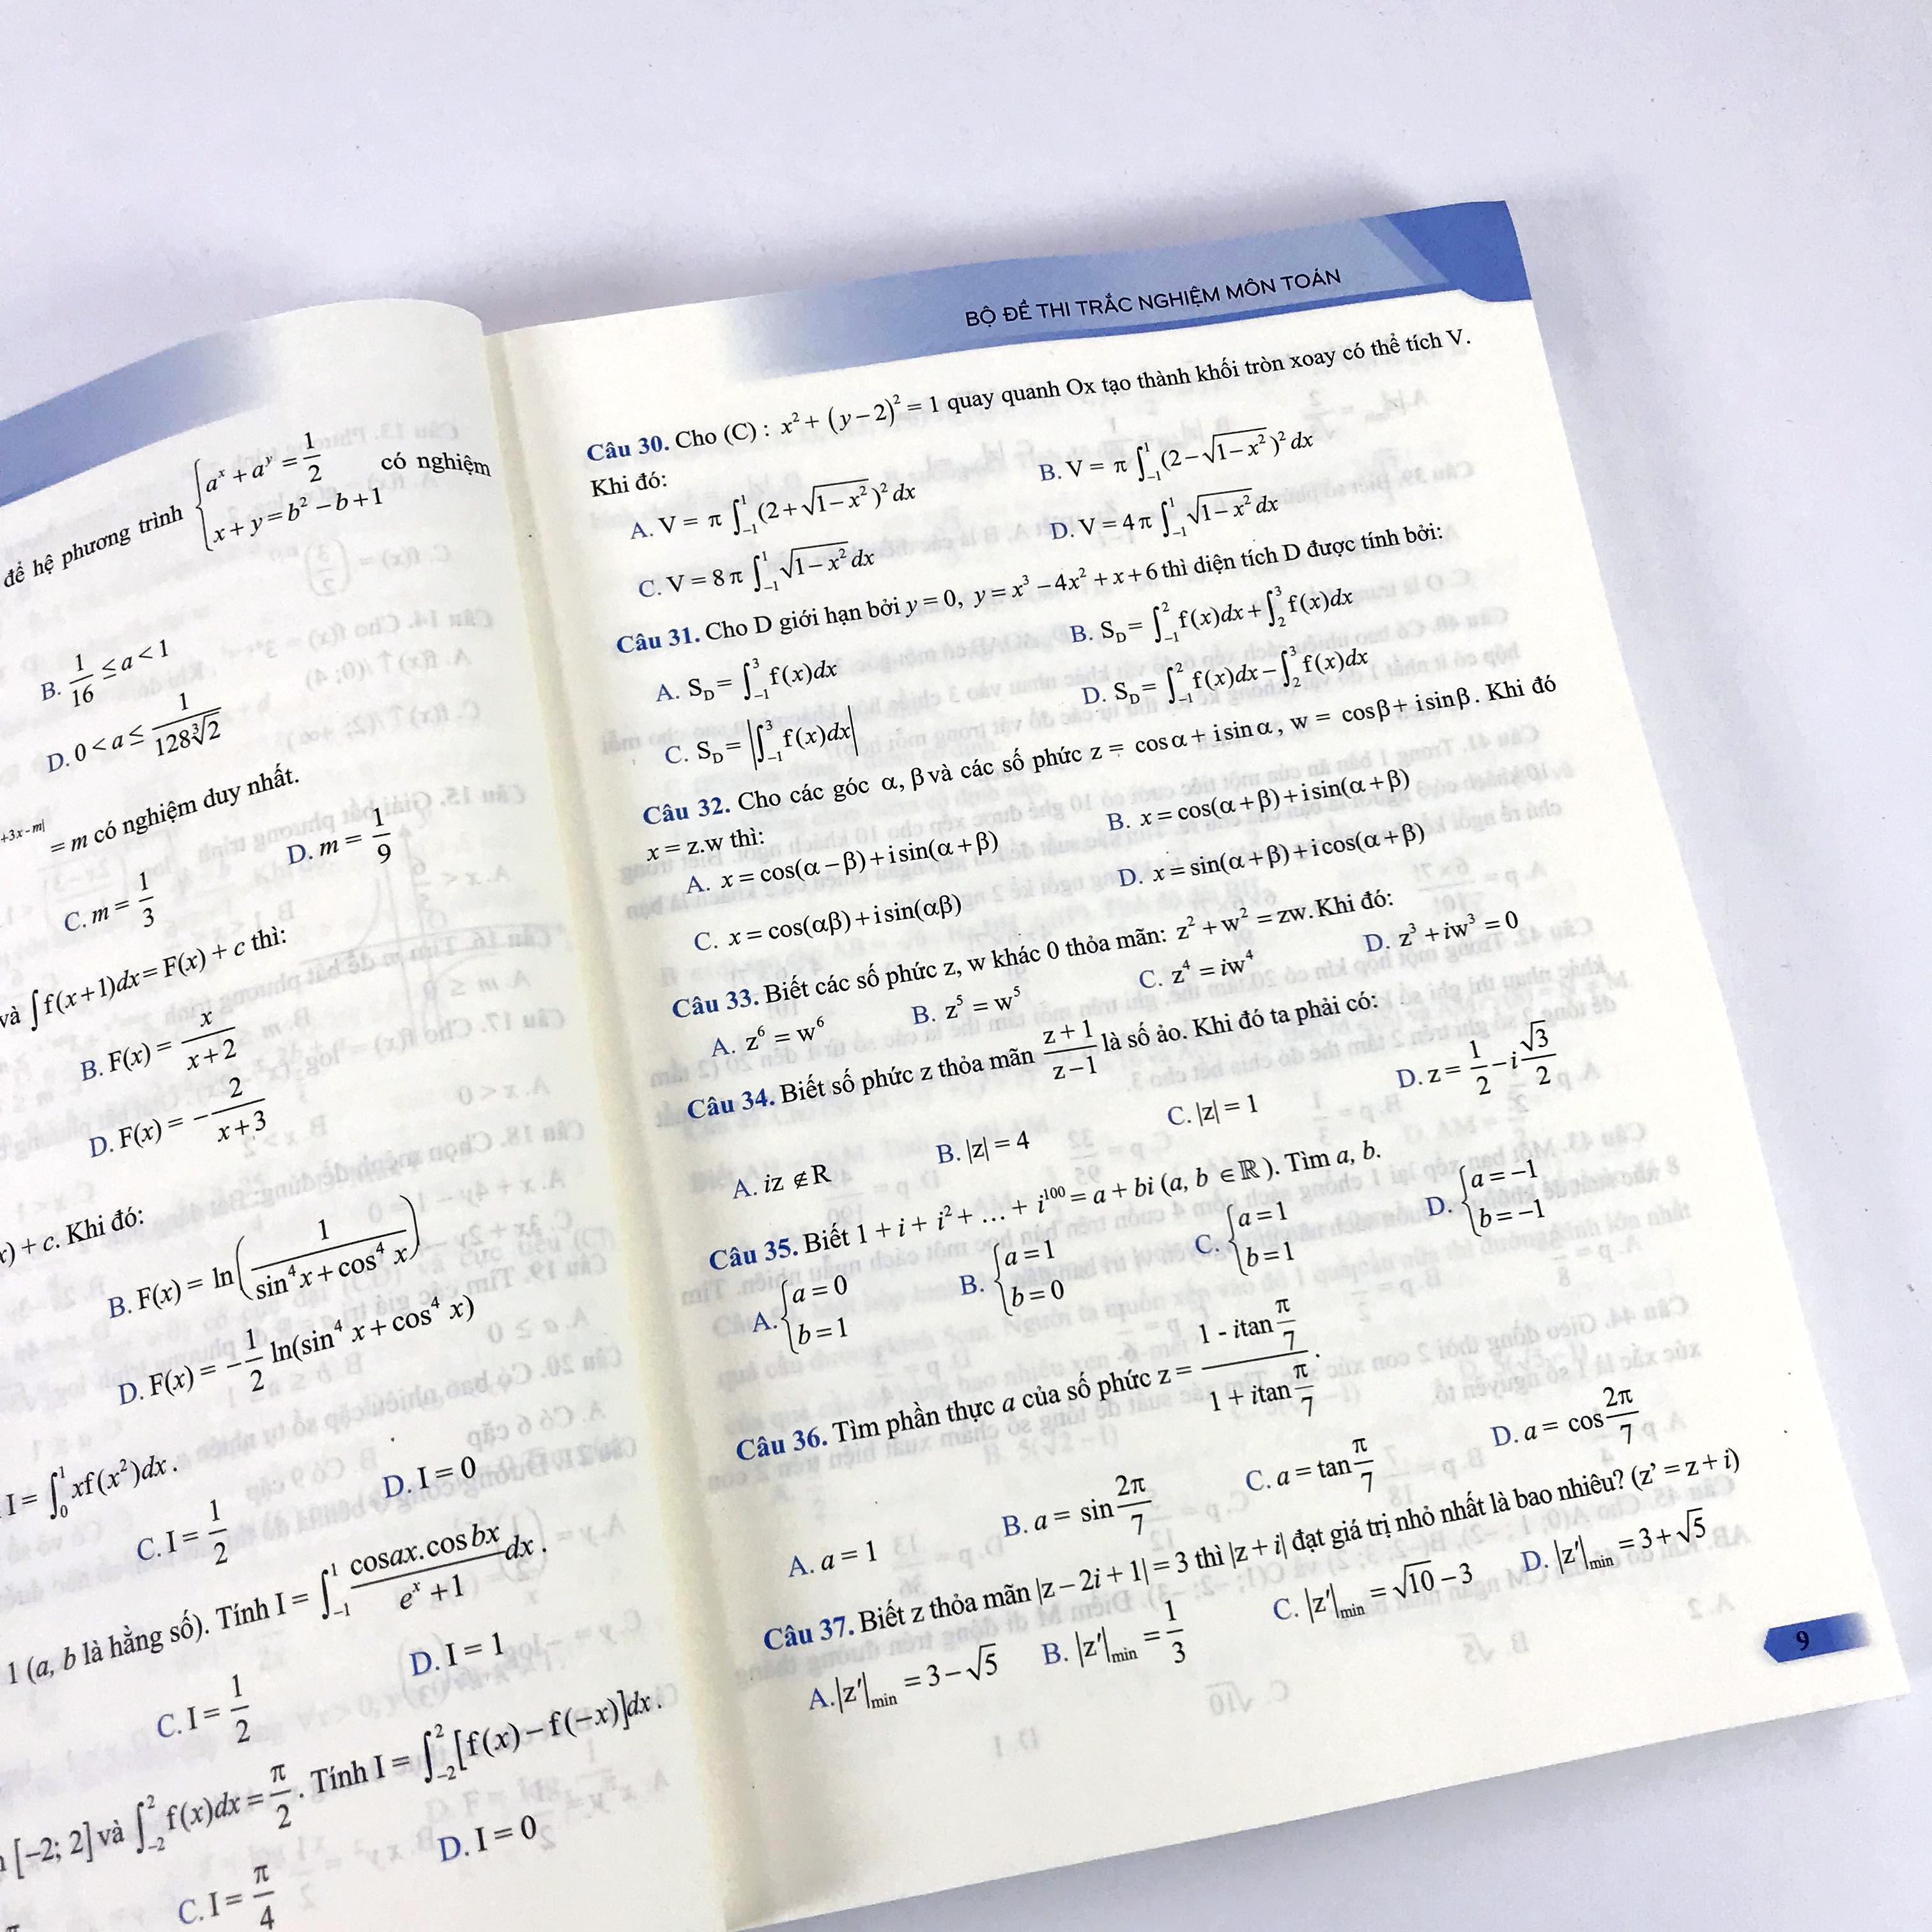 để hệ phương trình { aˣ + aʸ = 1/2 ; x + y = b² − b + 1 có nghiệm
B. 1/16 ≤ a < 1
D. 0 < a ≤ 1/(128∛2)
+3x−m| = m có nghiệm duy nhất.
C. m = 1/3 D. m = 1/9
và ∫f(x+1)dx = F(x) + c thì:
B. F(x) = x/(x+2)
D. F(x) = −2/(x+3)
x) + c. Khi đó:
B. F(x) = ln(1/(sin⁴x + cos⁴x))
D. F(x) = −1/2 ln(sin⁴x + cos⁴x)
I = ∫₀¹ xf(x²)dx.
C. I = 1/2 D. I = 0
1 (a, b là hằng số). Tính I = ∫₋₁¹ (cosax.cosbx)/(eˣ + 1) dx.
C. I = 1/2 D. I = 1
[−2; 2] và ∫₋₂² f(x)dx = π/2. Tính I = ∫₋₂² [f(x) − f(−x)]dx.
C. I = π/4 D. I = 0
BỘ ĐỀ THI TRẮC NGHIỆM MÔN TOÁN
Câu 30. Cho (C) : x² + (y − 2)² = 1 quay quanh Ox tạo thành khối tròn xoay có thể tích V.
Khi đó:
A. V = π∫₋₁¹(2 + √(1−x²))² dx B. V = π∫₋₁¹(2 − √(1−x²))² dx
C. V = 8π∫₋₁¹√(1−x²) dx D. V = 4π∫₋₁¹√(1−x²) dx
Câu 31. Cho D giới hạn bởi y = 0, y = x³ − 4x² + x + 6 thì diện tích D được tính bởi:
A. S_D = ∫₋₁³ f(x)dx B. S_D = ∫₋₁² f(x)dx + ∫₂³ f(x)dx
C. S_D = |∫₋₁³ f(x)dx| D. S_D = ∫₋₁² f(x)dx − ∫₂³ f(x)dx
Câu 32. Cho các góc α, β và các số phức z = cosα + isinα, w = cosβ + isinβ. Khi đó
x = z.w thì:
A. x = cos(α − β) + isin(α + β) B. x = cos(α + β) + isin(α + β)
C. x = cos(αβ) + isin(αβ) D. x = sin(α + β) + icos(α + β)
Câu 33. Biết các số phức z, w khác 0 thỏa mãn: z² + w² = zw. Khi đó:
A. z⁶ = w⁶ B. z⁵ = w⁵ C. z⁴ = iw⁴ D. z³ + iw³ = 0
Câu 34. Biết số phức z thỏa mãn (z+1)/(z−1) là số ảo. Khi đó ta phải có:
A. iz ∉ R B. |z| = 4 C. |z| = 1 D. z = 1/2 − i√3/2
Câu 35. Biết 1 + i + i² + ... + i¹⁰⁰ = a + bi (a, b ∈ ℝ). Tìm a, b.
A. { a = 0 ; b = 1 B. { a = 1 ; b = 0 C. { a = 1 ; b = 1 D. { a = −1 ; b = −1
Câu 36. Tìm phần thực a của số phức z = (1 - itan π/7)/(1 + itan π/7).
A. a = 1 B. a = sin 2π/7 C. a = tan π/7 D. a = cos 2π/7
Câu 37. Biết z thỏa mãn |z − 2i + 1| = 3 thì |z + i| đạt giá trị nhỏ nhất là bao nhiêu? (z' = z + i)
A. |z'|min = 3 − √5 B. |z'|min = 1/3 C. |z'|min = √10 − 3 D. |z'|min = 3 + √5
9